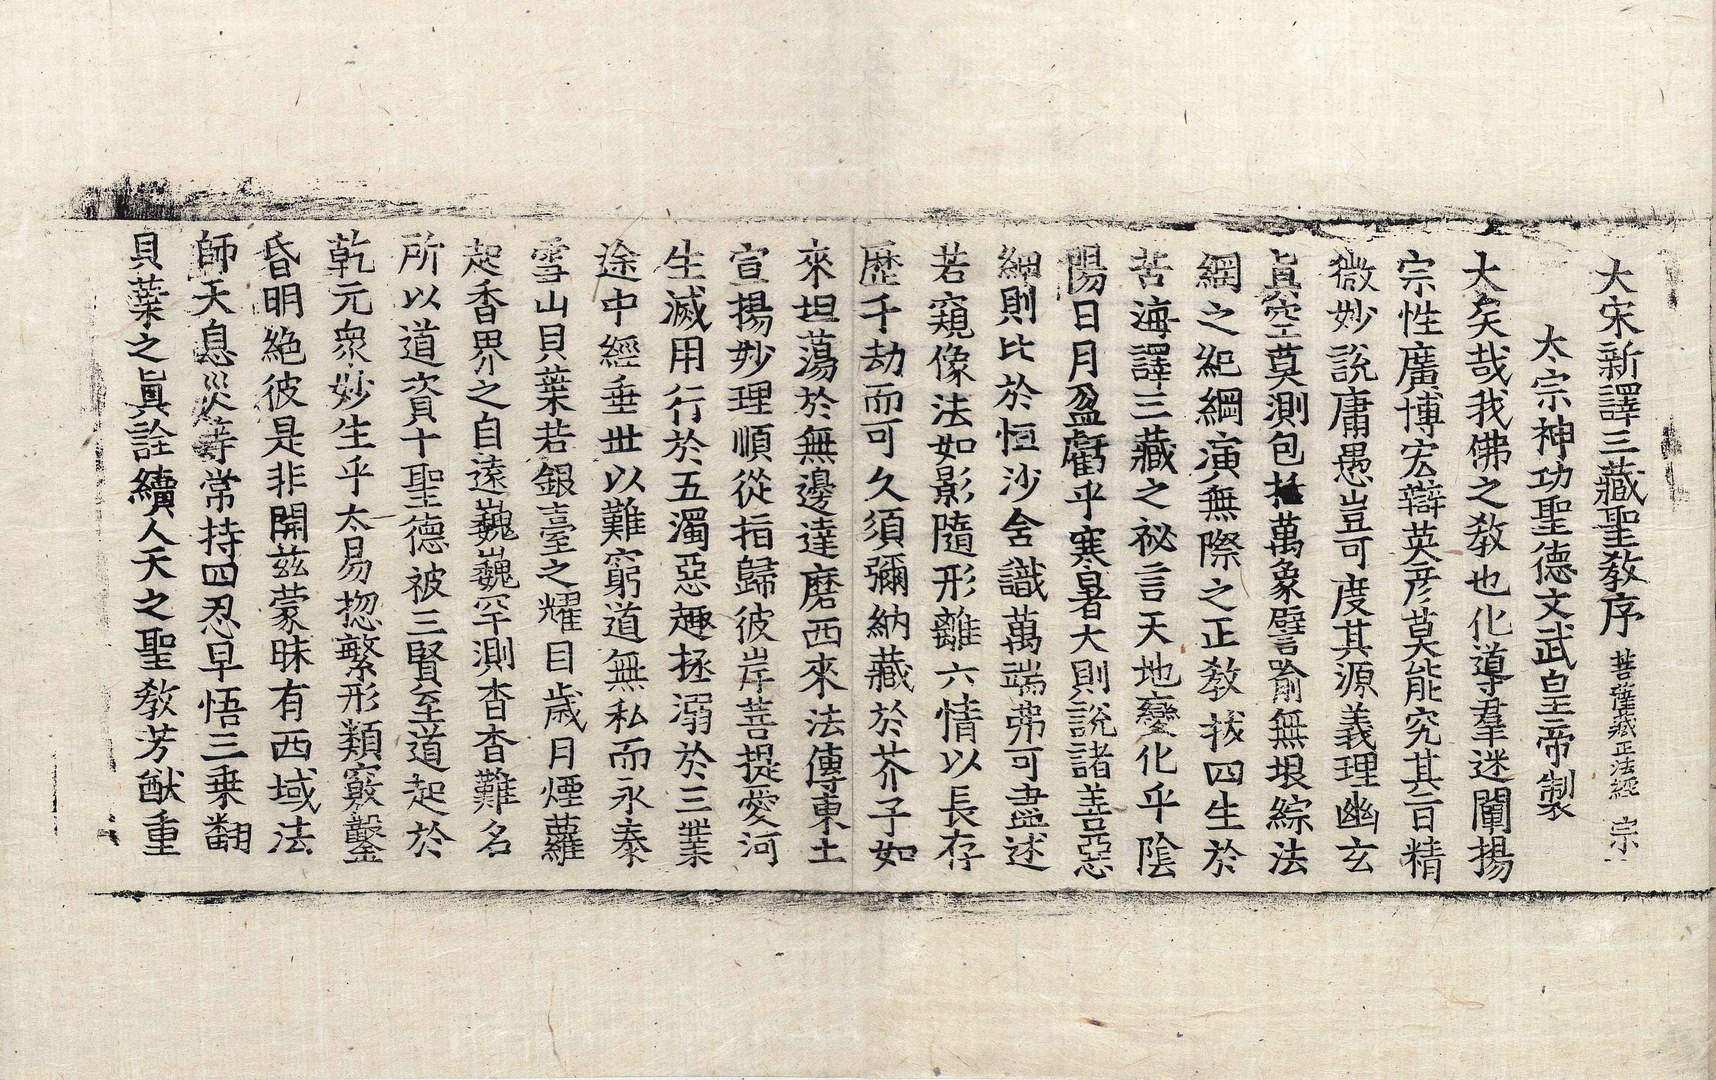 大宋新譯三藏聖教序 菩薩藏正法經 宗一
太宗神功聖德文武皇帝製
大矣哉我佛之教也化導羣迷闡揚
宗性廣博宏辯英彦莫能究其旨精
微妙說庸愚豈可度其源義理幽玄
眞空莫測包括萬象譬喻無垠綜法
網之紀綱演無際之正教拔四生於
苦海譯三藏之祕言天地變化乎陰
陽日月盈虧乎寒暑大則說諸善惡
細則比於恒沙含識萬端弗可盡述
若窺像法如影隨形離六情以長存
歷千劫而可久須彌納藏於芥子如
來坦蕩於無邊達磨西來法傳東土
宣揚妙理順從指歸彼岸菩提愛河
生滅用行於五濁惡趣拯溺於三業
途中經垂世以難窮道無私而永泰
雪山貝葉若銀臺之耀目歲月煙蘿
起香界之自遠巍巍罕測杳杳難名
所以道資十聖德被三賢至道起於
乾元衆妙生乎太易揔繁形類竅鑿
昏明絶彼是非開茲蒙昧有西域法
師天息災等常持四忍早悟三乗翻
貝葉之眞詮續人天之聖教芳猷重